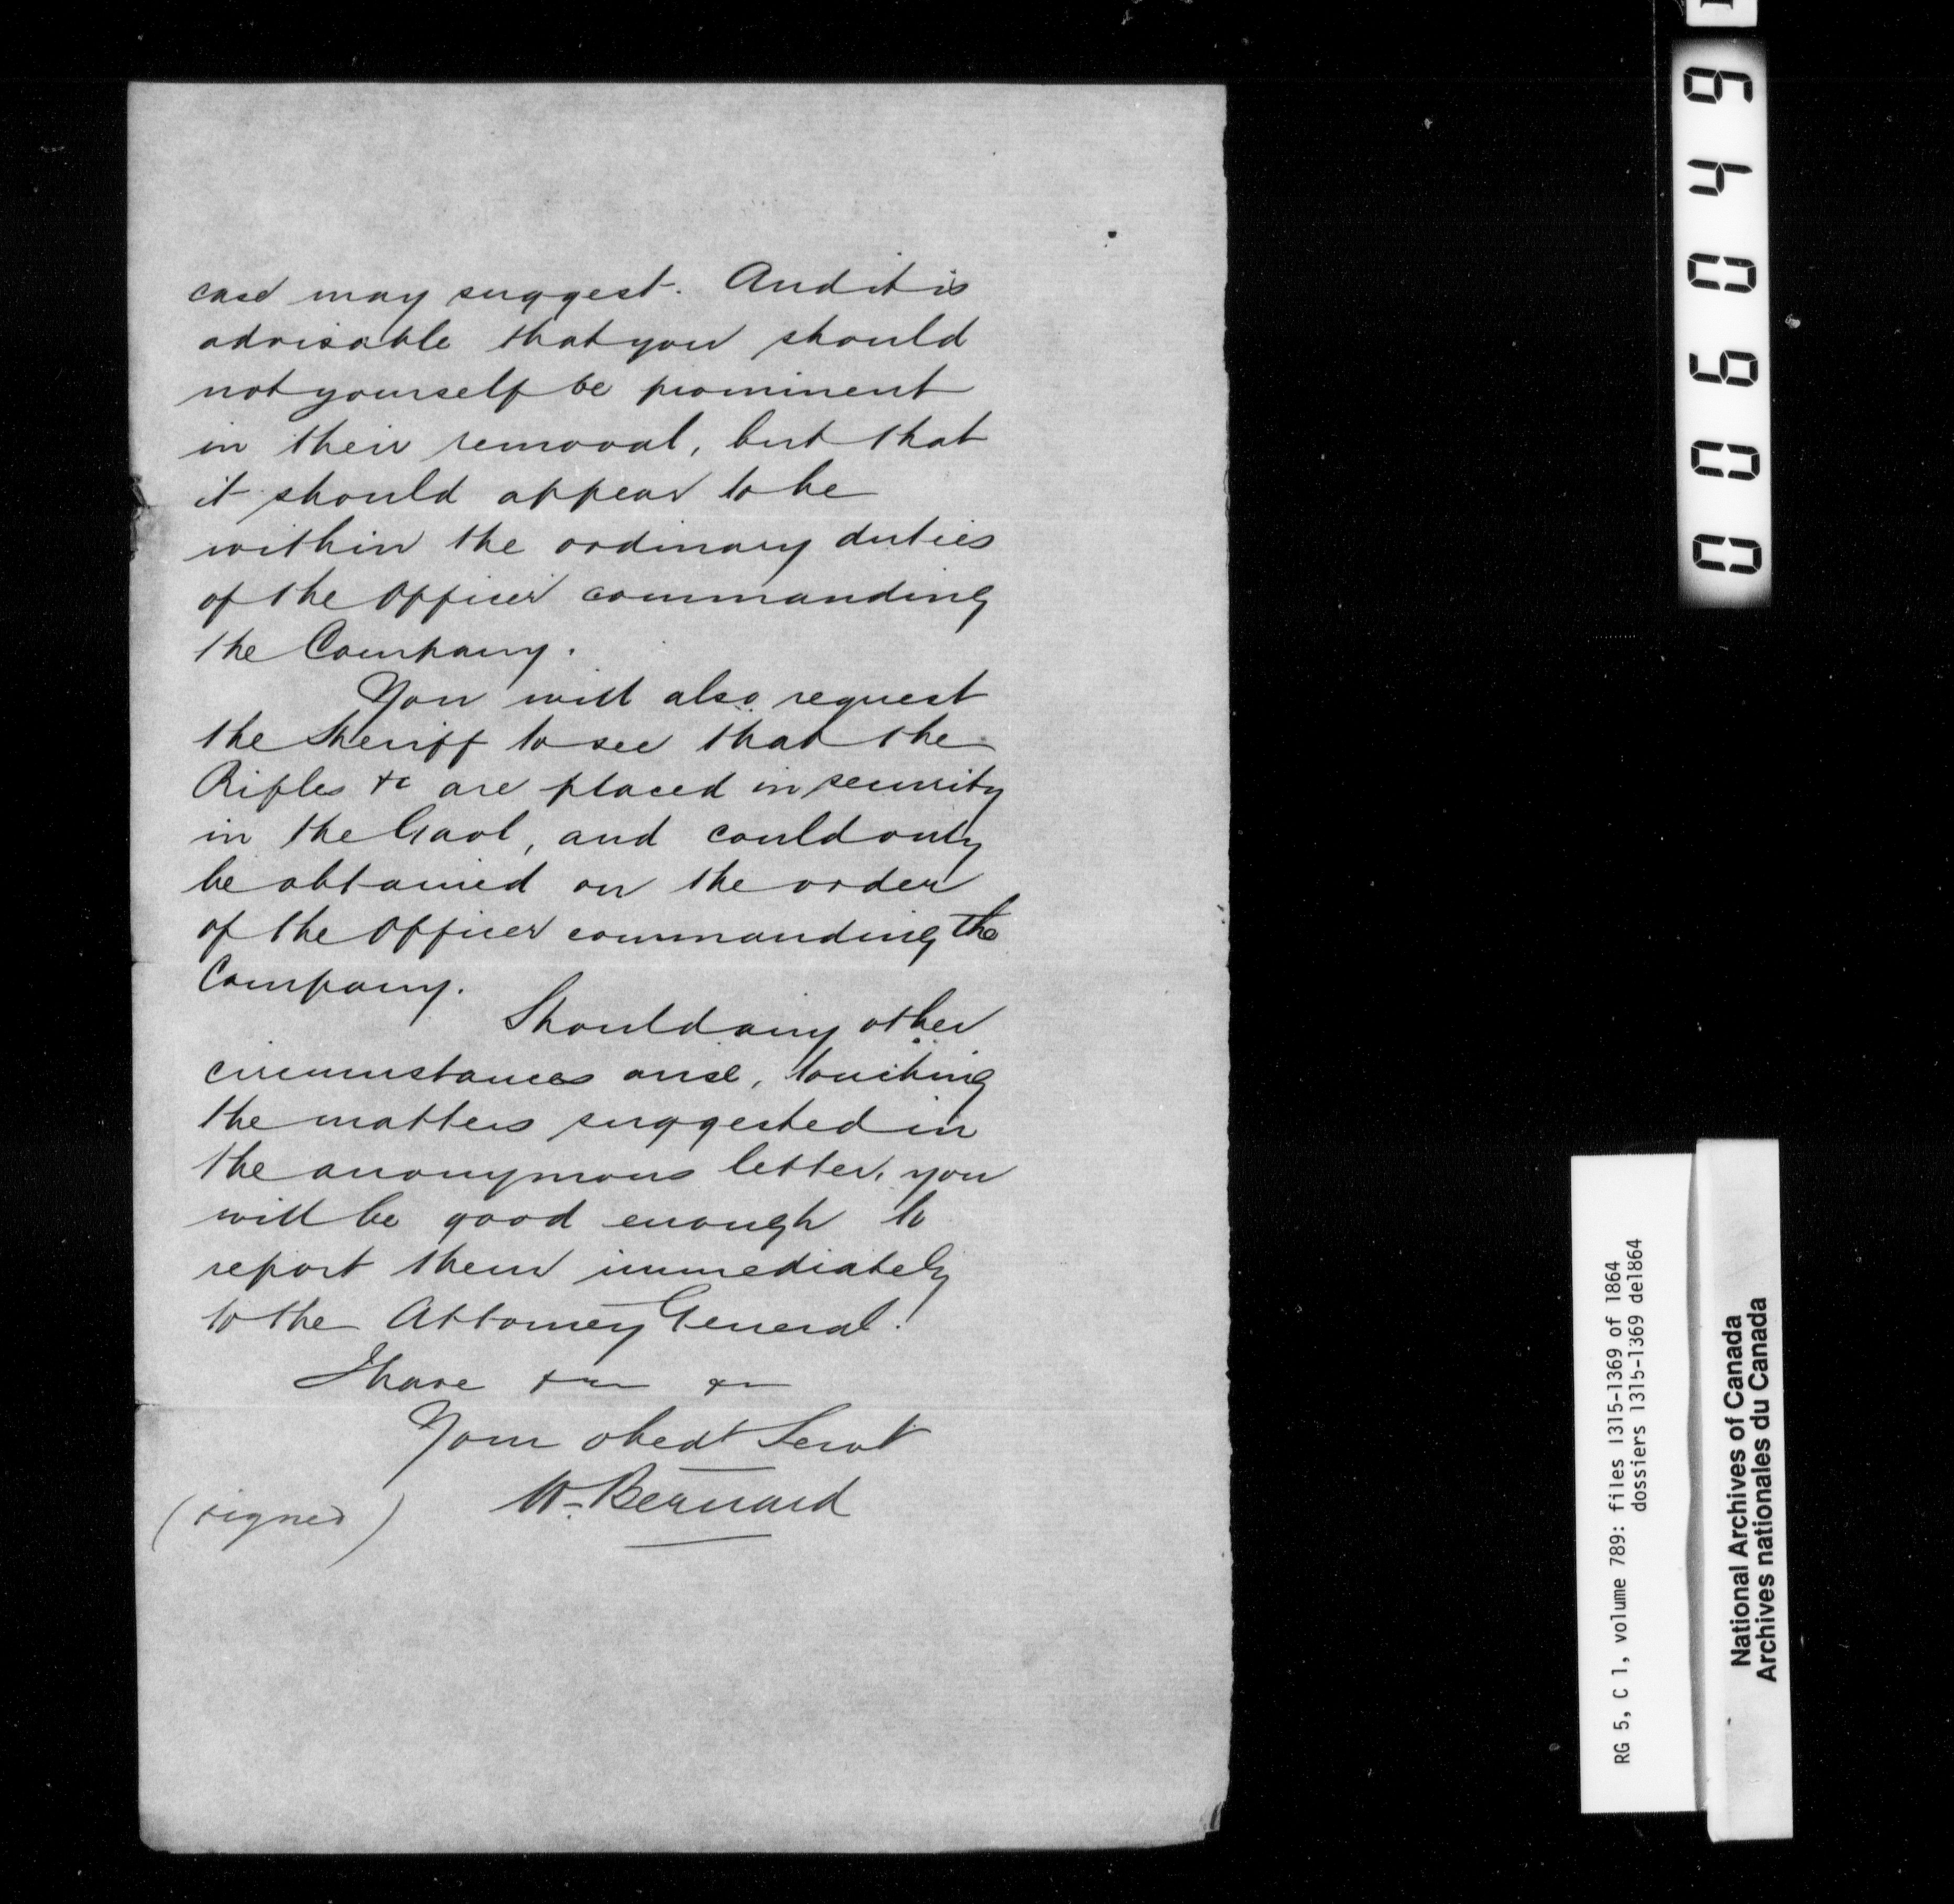 case may suggest. And it is
advisable that you should
not yourself be prominent
in their removal, but that
it should appear to be
within the ordinary duties
of the Officer commanding
the Company.
You will also request
the Sheriff to see that the
Rifles &c are placed in security
in the Gaol, and could only
be obtained on the order
of the Officer commanding the
Company.
Should any other
circumstances arise, touching
the matters suggested in
the anonymous letter, you
will be good enough to
report them immediately
to the Attorney General.
I have &c &c
Your obedt Servt
(signed) W. Bernard
006049
RG 5, C 1, volume 789: files 1315-1369 of 1864
dossiers 1315-1369 de1864
National Archives of Canada
Archives nationales du Canada